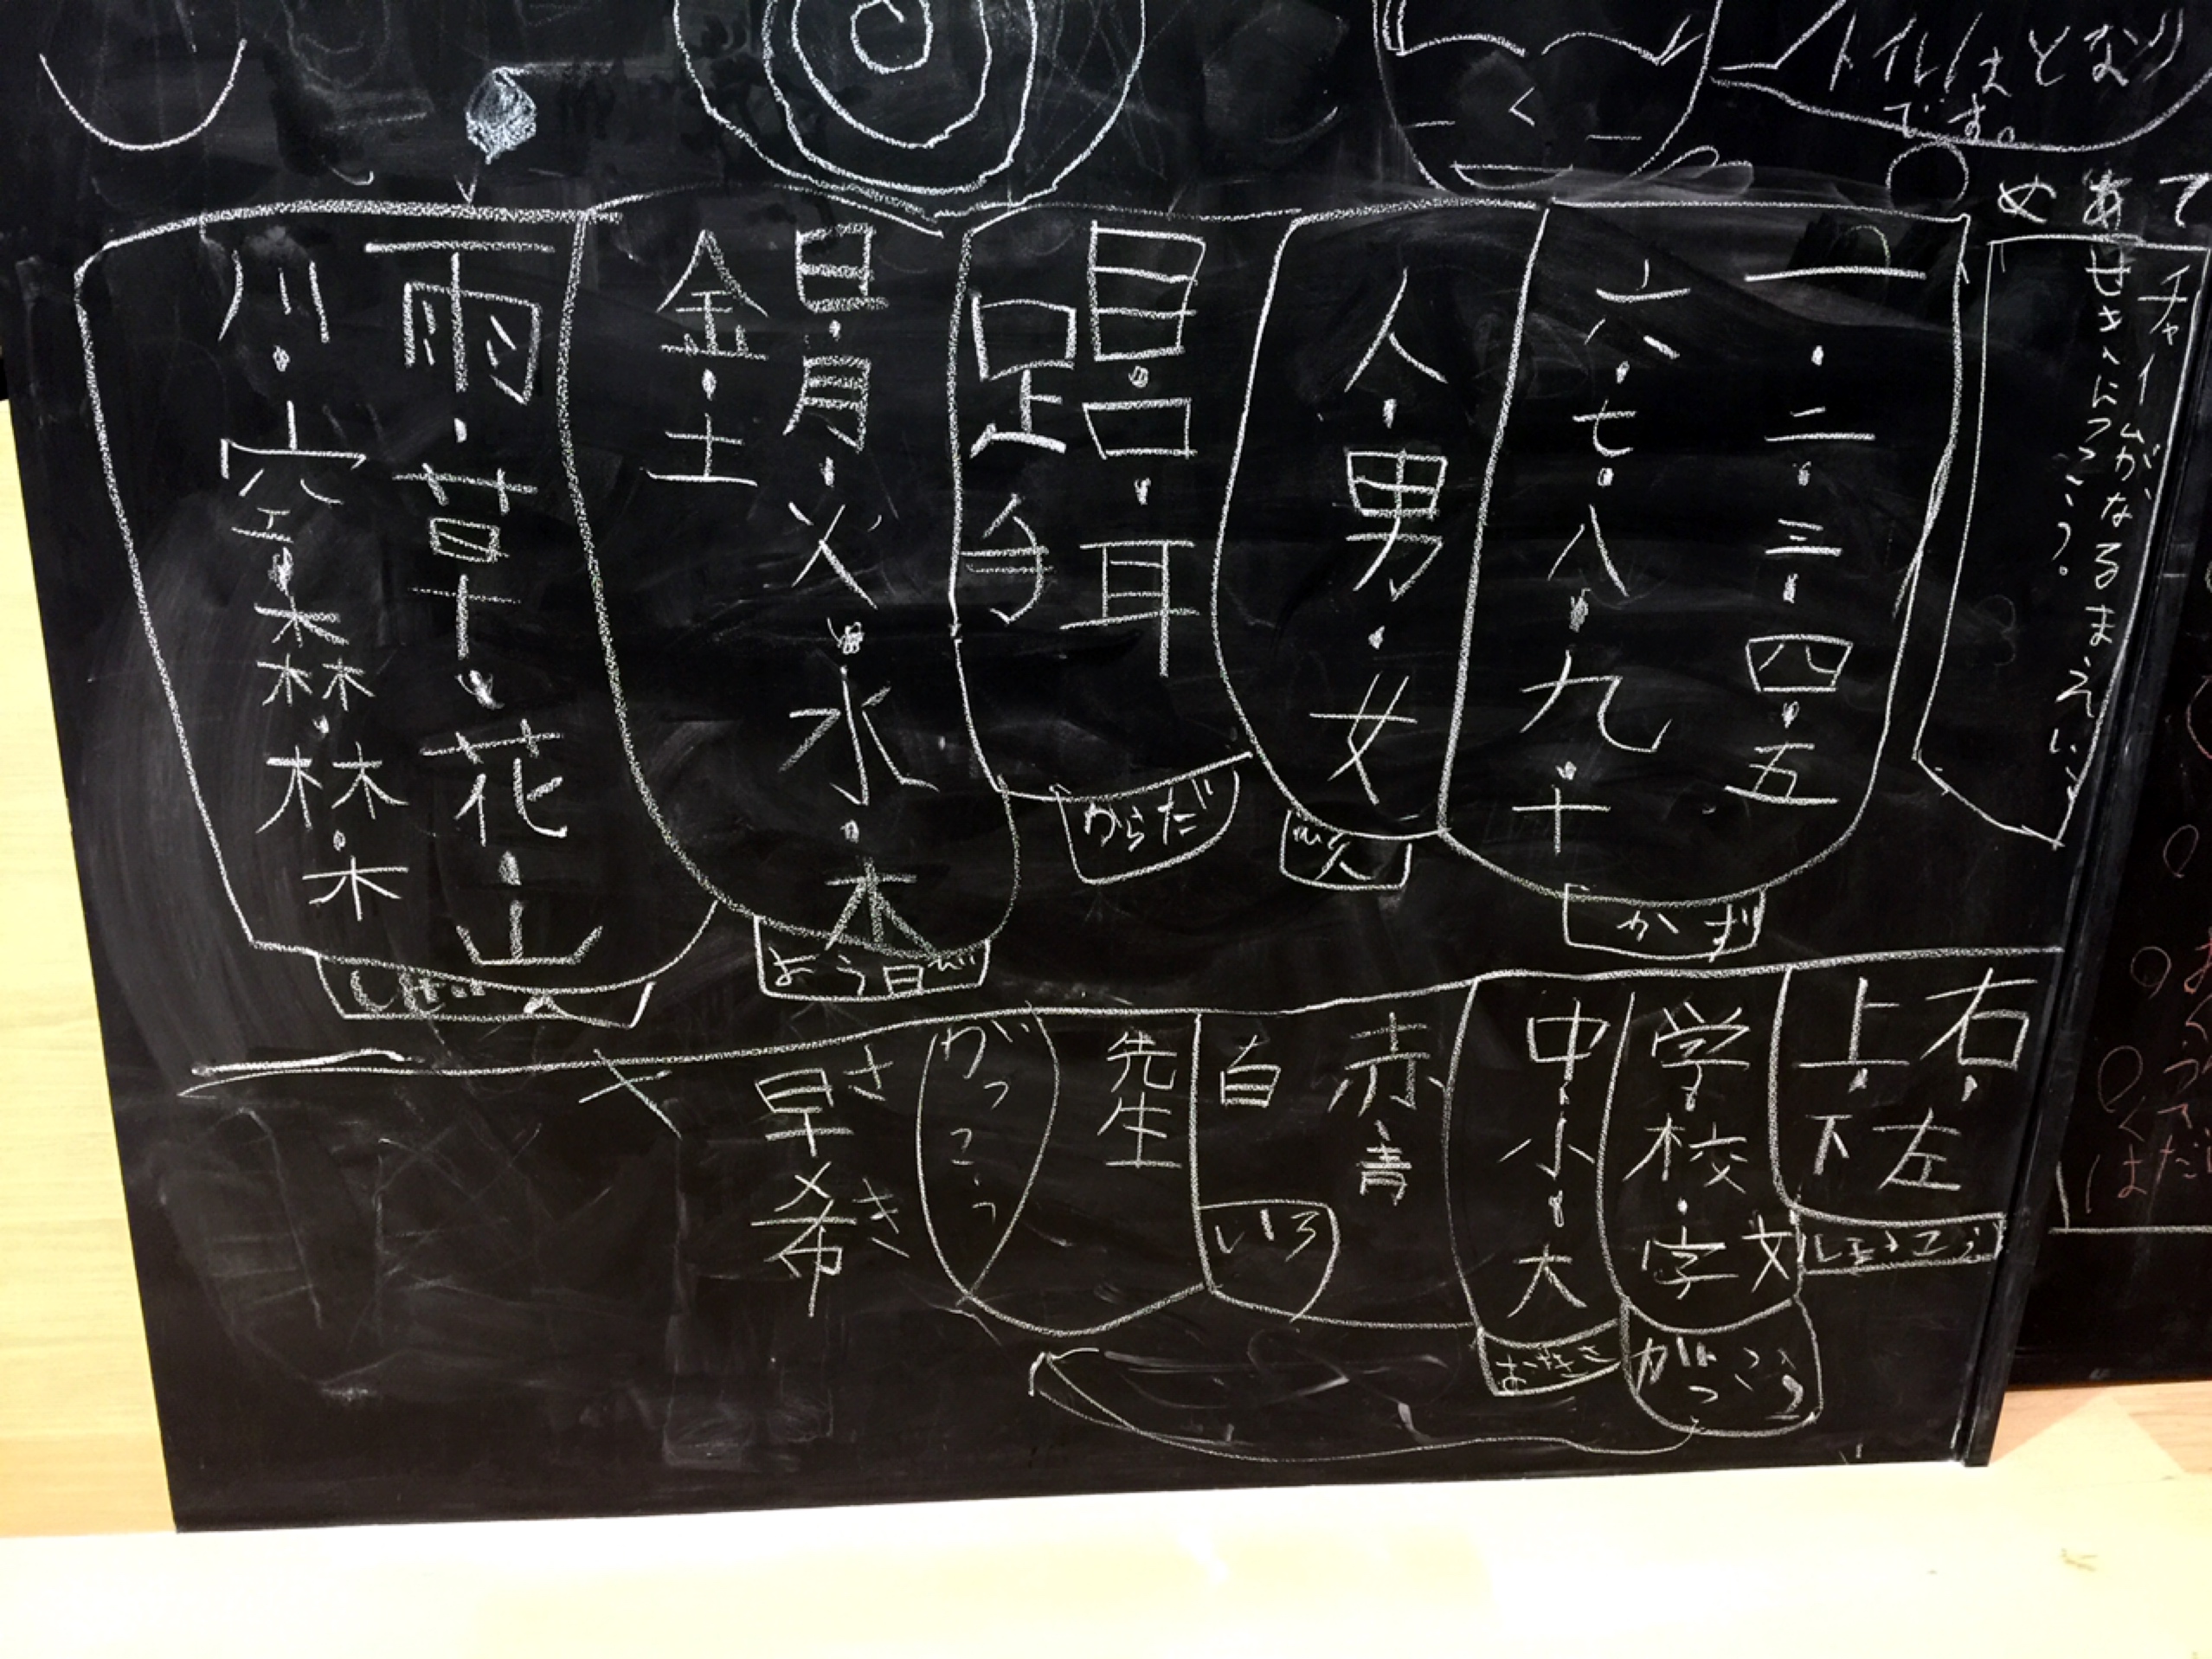 トイレはとなり
です。
めあて
チャイムがなるまえに
せきにつこう。
一・二・三・四・五
六・七・八・九・十
かず
人・男・女
人
目・口・耳
足・手
からだ
日・月・火・水・木
金・土
よう日
雨・草・花・山
川・空・森・林・木
しぜん
右・左
上・下
学・校・字
文
がっこう
中・小・大
おおきさ
赤・青
白
いろ
先生
がっこう
早希
さき